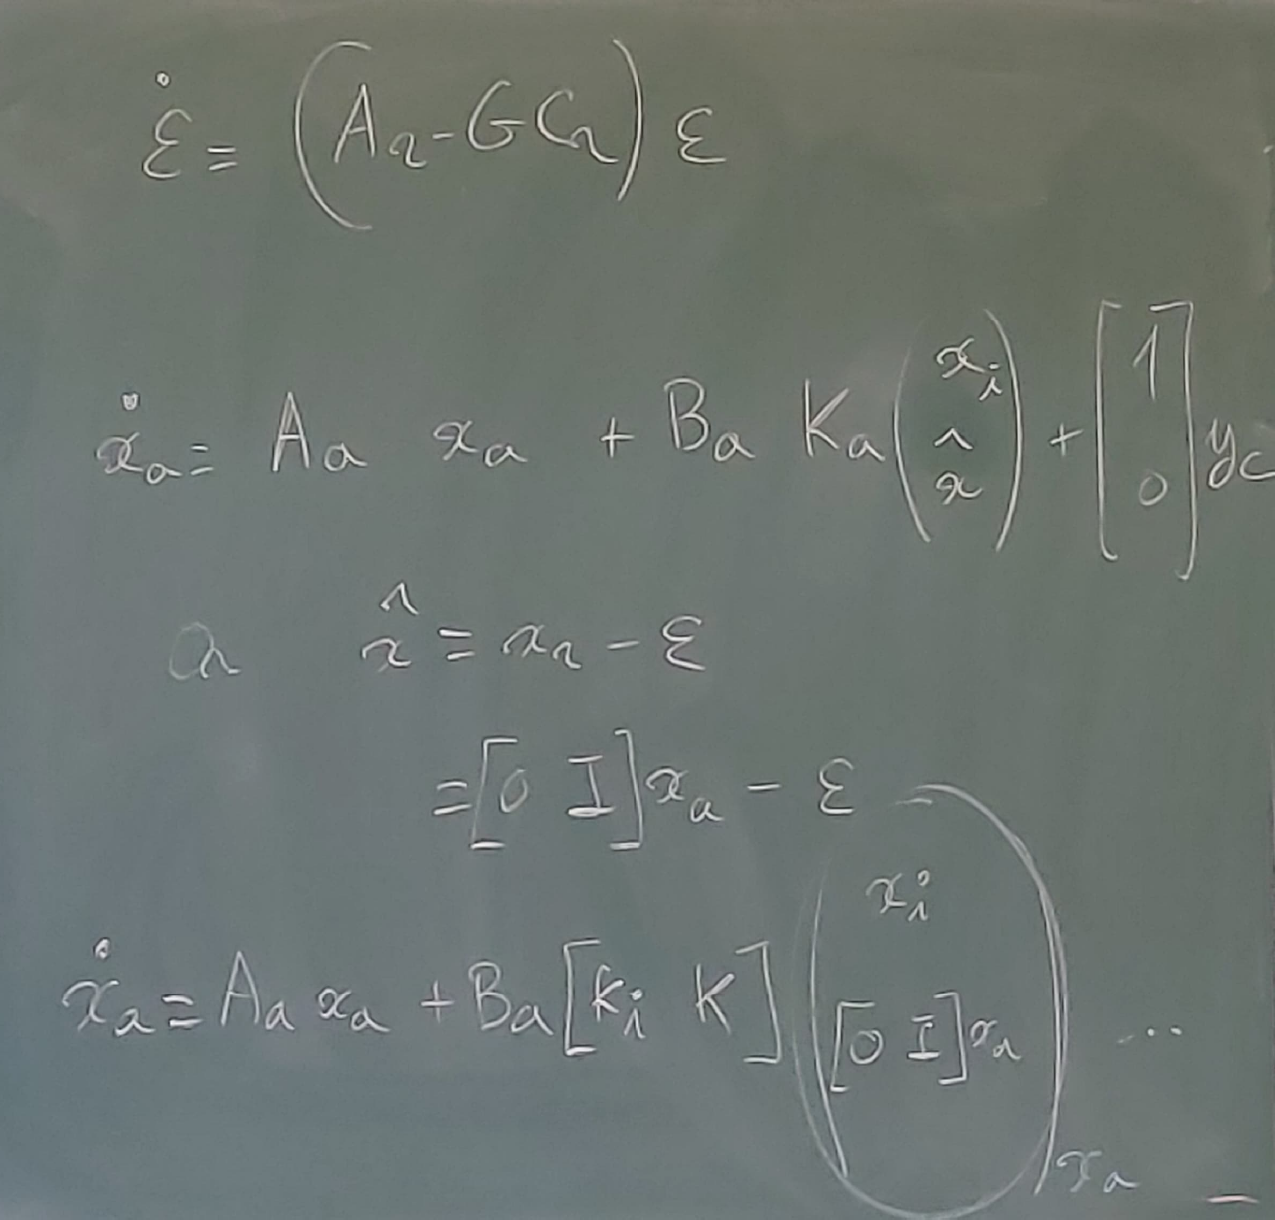 ε̇ = (A_r - G C_r) ε
ẋ_a = A_a x_a + B_a K_a (x_i x̂) + [1 0] y_c
a x̂ = x_r - ε
= [0 I] x_a - ε
ẋ_a = A_a x_a + B_a [k_i K] (x_i [0 I] x_a) ...
x_a